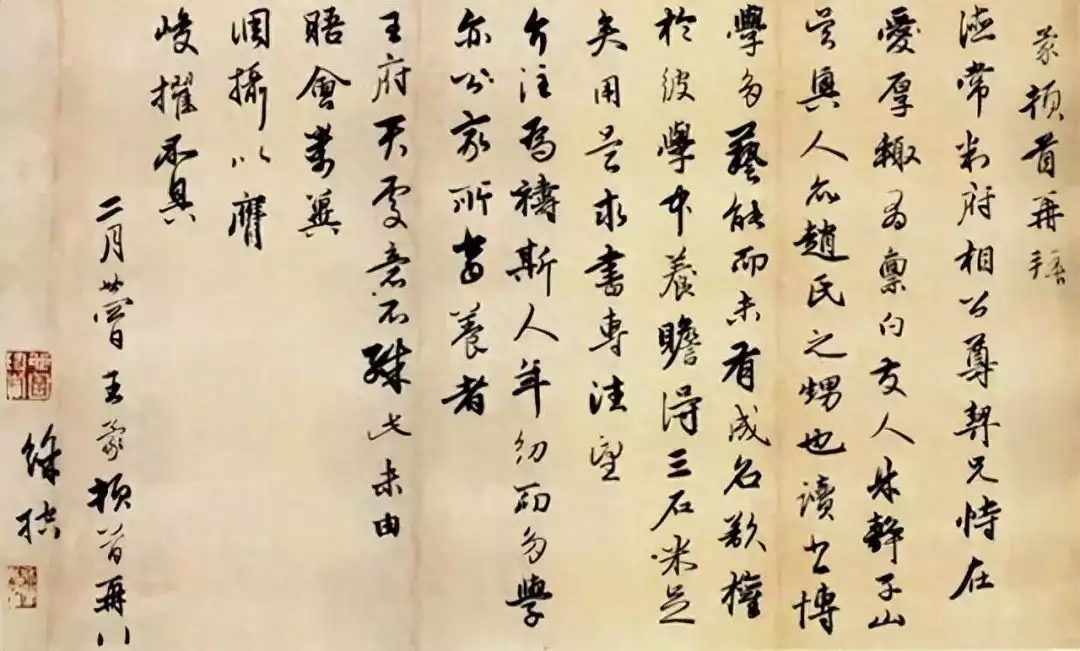 蒙頓首再拜
德常判府相公尊契兄恃在
愛厚輒為稟白友人朱靜子山
吳興人亦趙氏之甥也讀書博
學多藝能而未有成名欲權
於彼學中養贍得三石米足
矣用是求書專注望
介注為禱斯人年幼而多學
亦公家所當養者
王府天處意不殊此未由
晤會萬冀
調攝以膺
峻擢不具
二月廿四日王蒙頓首再拜
徐